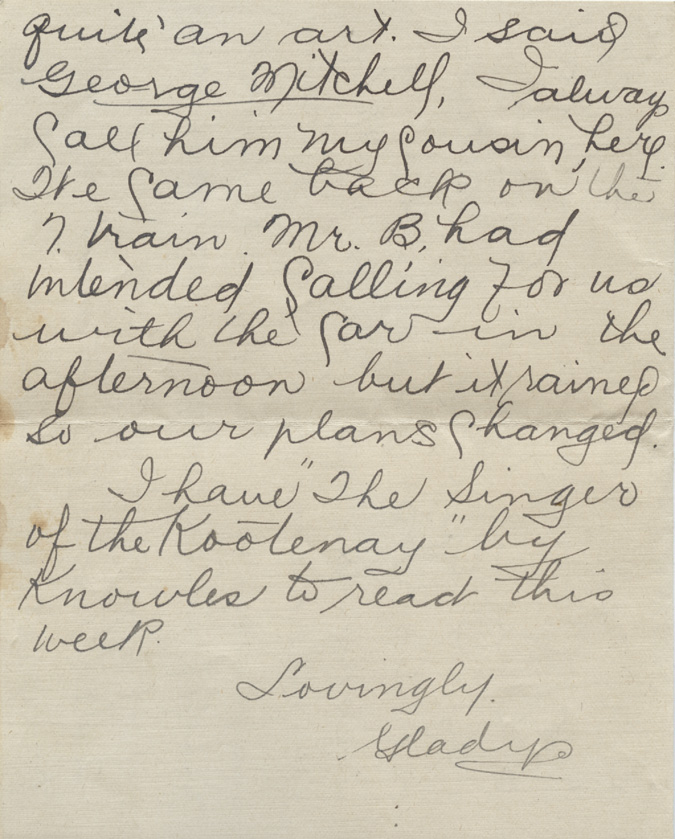 quite an art. I said
George Mitchell, I alway
call him my cousin, here.
We came back on the
7. train. Mr. B. had
intended calling for us
with the car in the
afternoon but it rained
so our plans changed.
I have "The Singer
of the Kootenay" by
Knowles to read this
week.
Lovingly.
Gladys